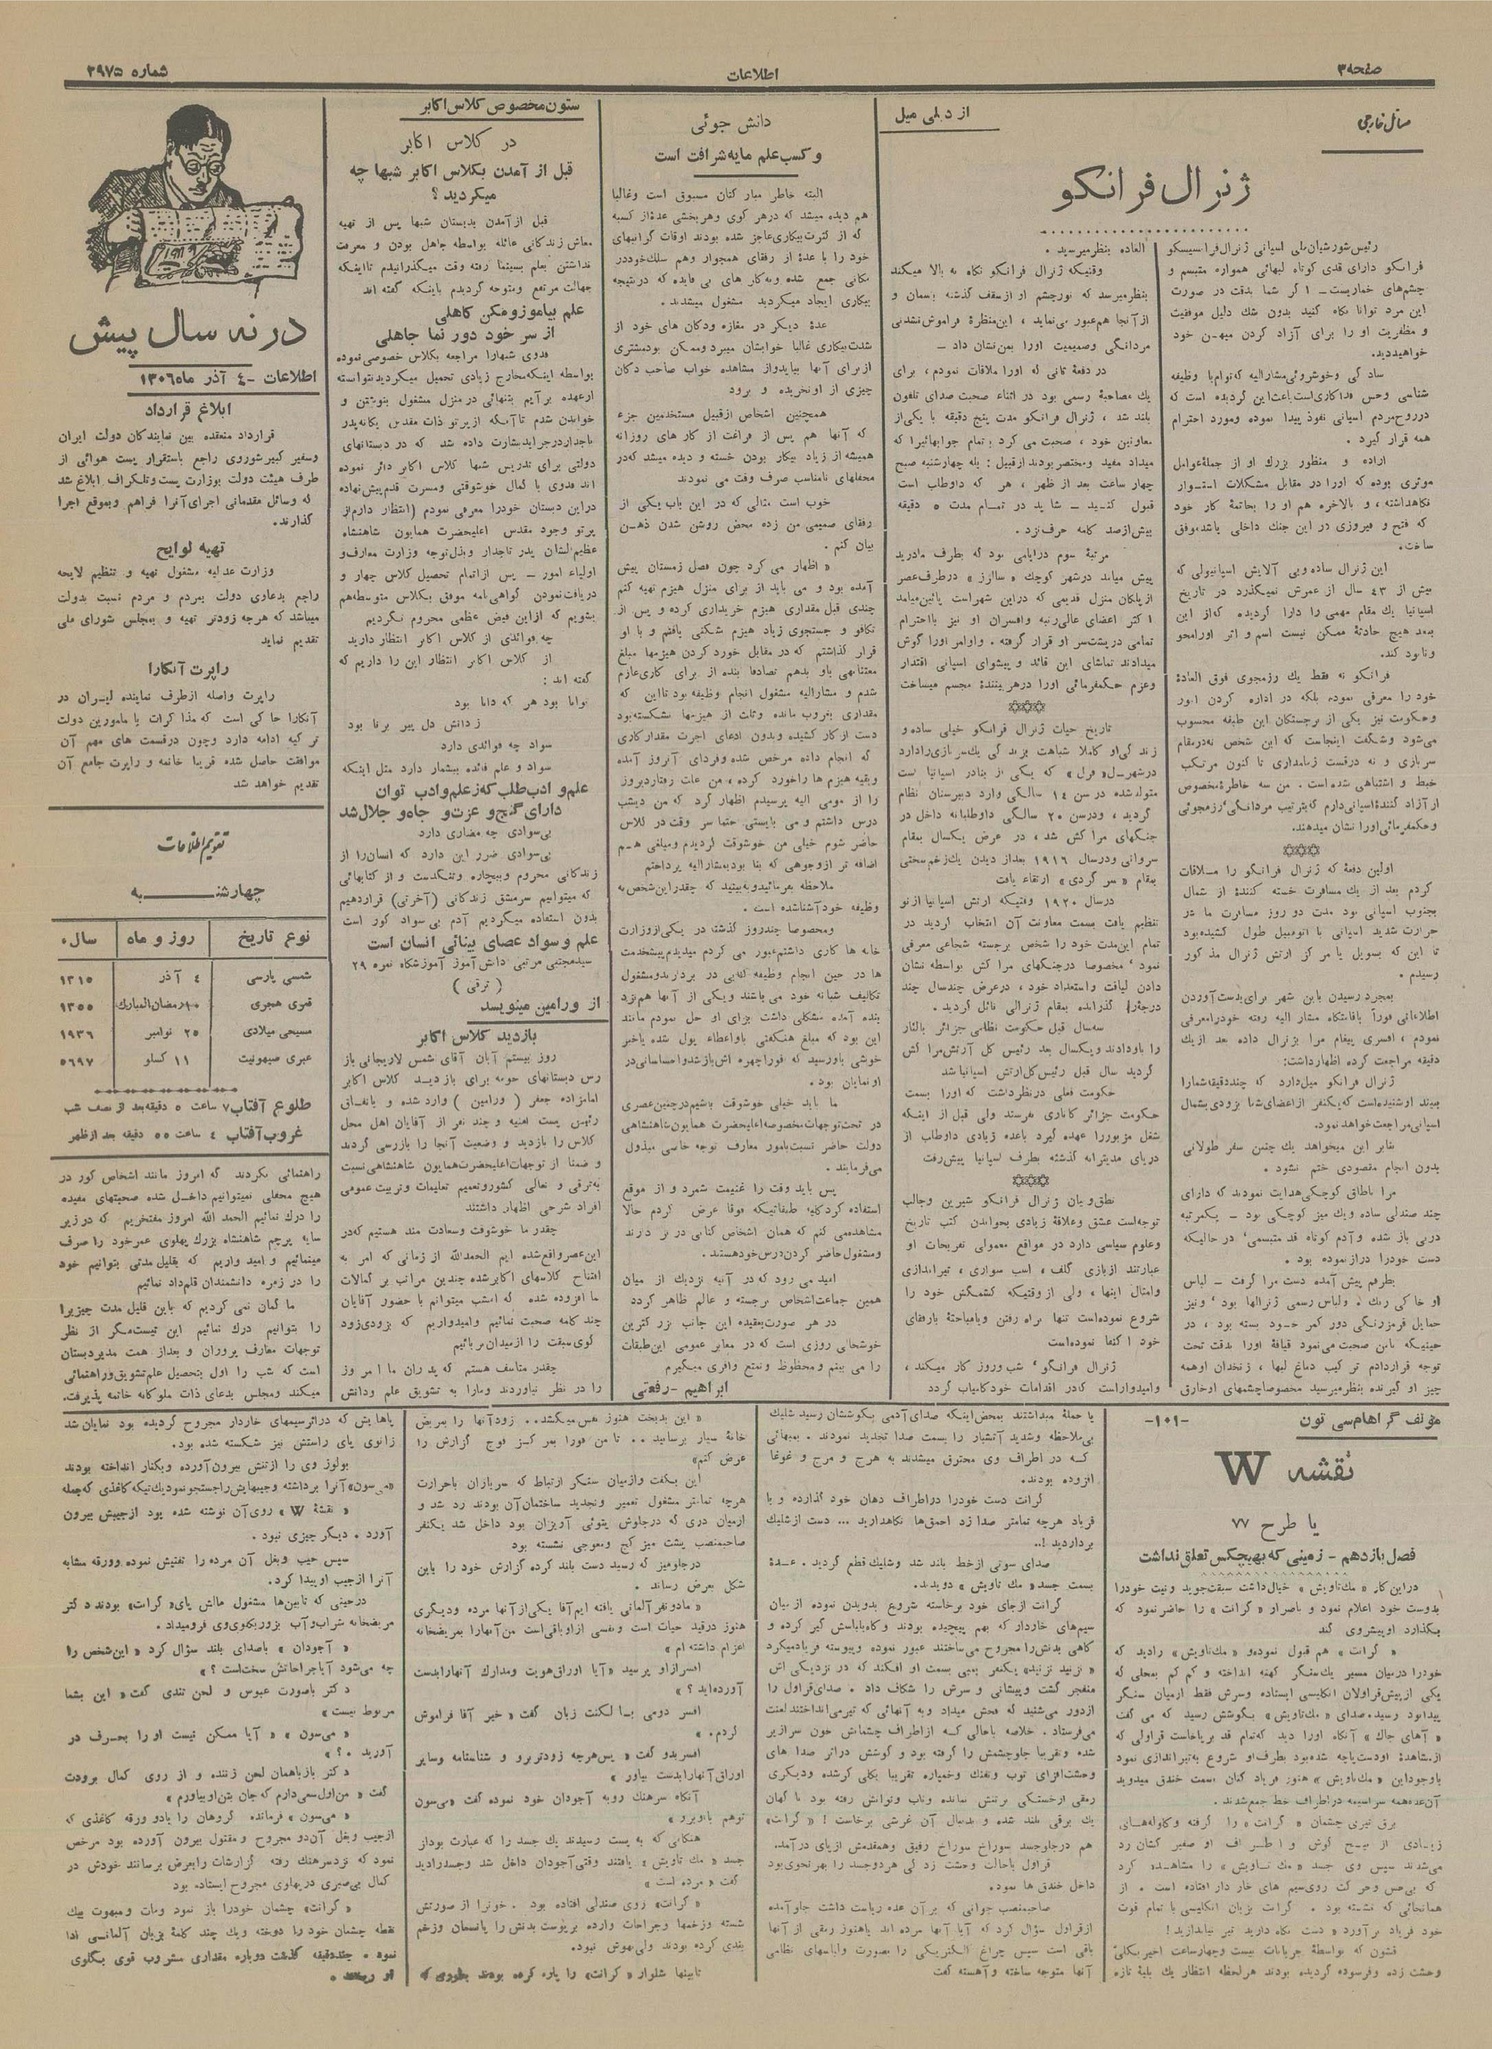 صفحه ۳
اطلاعات
شماره ۲۹۷۵
مسائل خارجی
از دیلی میل
ژنرال فرانکو
رئیس شورشیان ملی اسپانی ژنرال فرانسیسکو
فرانکو دارای قدی کوتاه لبهائی همواره متبسم و
این مرد توانا نگاه کنید بدون شک دلیل موفقیت
و مظفریت او را برای آزاد کردن میهن خود
خواهید دید.
همه قرار گیرد.
اراده و منظور بزرگ او از جمله عوامل
موثری بوده که او را در مقابل مشکلات استوار
نگاهداشته، و بالاخره هم او را بخاتمه کار خود
که فتح و فیروزی در این جنگ داخلی باشد موفق
ساخت.
این ژنرال ساده و بی آلایش اسپانیولی که
بیش از ۴۳ سال از عمرش نمیگذرد در تاریخ
اسپانیا یک مقام مهمی را دارا گردیده که از این
ببعد هیچ حادثه ممکن نیست اسم و اثر او را محو
و نابود کند.
فرانکو نه فقط یک رزمجوی فوق العاده
خود را معرفی نموده بلکه در اداره کردن امور
و حکومت نیز یکی از برجستگان این طبقه محسوب
می‌شود و شگفت اینجاست که این شخص نه در مقام
سربازی و نه در قسمت زمامداری تا کنون مرتکب
خبط و اشتباهی شده است. من سه خاطره مخصوص
و حکمفرمائی او را نشان میدهند.
اولین دفعه که ژنرال فرانکو را ملاقات
کردم بعد از یک مسافرت خسته کننده از شمال
بجنوب اسپانی بود مدت دو روز مسافرت ما در
حرارت شدید اسپانی با اتومبیل طول کشیده بود
تا این که بسویل یا مرکز ارتش ژنرال مذکور
رسیدم.
بمجرد رسیدن باین شهر برای بدست آوردن
اطلاعاتی فوراً باقامتگاه مشارالیه رفته خود را معرفی
نمودم، افسری پیغام مرا بژنرال داده بعد از یک
دقیقه مراجعت کرده اظهار داشت:
ژنرال فرانکو میل دارد که چند دقیقه شما را
اسپانی مراجعت خواهد نمود.
بنابر این میخواهد یک چنین سفر طولانی
بدون انجام مقصودی ختم نشود.
مرا باطاق کوچکی هدایت نمودند که دارای
چند صندلی ساده و یک میز کوچکی بود - یکمرتبه
دربی باز شده و آدم کوتاه قد متبسمی، در حالیکه
دست خود را دراز نموده بود.
بطرفم پیش آمده دست مرا گرفت - لباس
او خاکی رنگ، و لباس رسمی ژنرالها بود، و نیز
حمایل قرمز رنگی دور کمر خود بسته بود، در
حینیکه با من صحبت می‌نمود قیافه او را بدقت تحت
توجه قراردادم ترکیب دماغ لبها، زنخدان او همه
چیز او گیرنده بنظر میرسید مخصوصا چشمهای او خارق
العاده بنظر میرسید.
وقتیکه ژنرال فرانکو نگاه به بالا میکند
بنظر میرسد که نور چشم او از سقف گذشته بآسمان و
از آنجا هم عبور می‌نماید، این منظرۀ فراموش نشدنی
مردانگی و صمیمیت او را بمن نشان داد -
در دفعهٔ ثانی که او را ملاقات نمودم، برای
یک مصاحبهٔ رسمی بود در اثناء صحبت صدای تلفون
بلند شد، ژنرال فرانکو مدت پنج دقیقه با یکی از
معاونین خود، صحبت می کرد؛ تمام جوابهائیرا که
میداد مفید و مختصر بودند از قبیل: بله چهارشنبه صبح
چهار ساعت بعد از ظهر، هر که داوطلب است
قبول کنید - شاید در تمام مدت ۵ دقیقه
بیش از صد کلمه حرف نزد.
مرتبهٔ سوم در ایامی بود که بطرف مادرید
از پلکان منزل قدیمی که در این شهر است پائین میامد
اکثر اعضای عالی رتبه و افسران او نیز با احترام
تمامی در پشت سر او قرار گرفته. و اوامر او را گوش
میدادند تماشای این قائد و پیشوای اسپانی اقتدار
و عزم حکمفرمائی او را در هر بیننده مجسم میساخت
تاریخ حیات ژنرال فرانکو خیلی ساده و
متولد شده در سن ۱۴ سالگی وارد دبیرستان نظام
گردید، و در سن ۲۰ سالگی داوطلبانه داخل در
جنگهای مراکش شد، در عرض یکسال بمقام
سروانی و در سال ۱۹۱۶ بعد از دیدن یک زخم سختی
بمقام « سرگردی » ارتقاء یافت
در سال ۱۹۲۰ وقتیکه ارتش اسپانیا از نو
تنظیم یافت بسمت معاونت آن انتخاب گردید در
تمام این مدت خود را شخص برجسته شجاعی معرفی
نمود، مخصوصا در جنگهای مراکش بواسطه نشان
دادن لیاقت و استعداد خود، در عرض چند سال چند
درجه را گذرانده بمقام ژنرالی نائل گردید.
گردید سال قبل رئیس کل ارتش اسپانیا شد
حکومت فعلی در نظر داشت که او را بسمت
حکومت جزائر کاناری بفرستد ولی قبل از اینکه
شغل مزبور را عهده گیرد با عده زیادی داوطلب از
دریای مدیترانه گذشته بطرف اسپانیا پیش رفت
نطق و بیان ژنرال فرانکو شیرین و جالب
توجه است عشق و علاقهٔ زیادی بخواندن کتب تاریخ
و علوم سیاسی دارد در مواقع معمولی تفریحات او
عبارتند از بازی گلف، اسب سواری، تیراندازی
و امثال اینها، ولی از وقتیکه کشمکش خود را
شروع نموده است تنها براه رفتن و با مباحثه با رفقای
خود اکتفا نموده است
ژنرال فرانکو، شب و روز کار میکند،
و امیدوار است که در اقدامات خود کامیاب گردد
دانش جوئی
و کسب علم مایه شرافت است
البته خاطر مبارکتان مسبوق است و غالبا
هم دیده میشد که در هر کوی و هر بخشی عدۀ از کسبه
که از کثرت بیکاری عاجز شده بودند اوقات گرانبهای
خود را با عدۀ از رفقای همجوار و هم سلک خود در
مکانی جمع شده و به کار های بی فایده که در نتیجه
بیکاری ایجاد میکردید مشغول میشدند.
عدۀ دیگر در مغازه و دکان های خود از
شدت بیکاری غالبا خوابشان میبرد و ممکن بود مشتری
از برای آنها بیاید و از مشاهده خواب صاحب دکان
چیزی از او نخریده و برود
همچنین اشخاص از قبیل مستخدمین جزء
که آنها هم پس از فراغت از کار های روزانه
همیشه از زیاد بیکار بودن خسته و دیده میشد که در
محفلهای نامناسب صرف وقت می نمودند
خوب است مثالی که در این باب یکی از
رفقای صمیمی من زده محض روشن شدن ذهن
بیان کنم.
« اظهار می کرد چون فصل زمستان پیش
آمده بود و می باید از برای منزل هیزم تهیه کنم
چندی قبل مقداری هیزم خریداری کرده و پس از
تکاپو و جستجوی زیاد هیزم شکنی یافتم و با او
قرار گذاشتم که در مقابل خورد کردن هیزمها مبلغ
معتنابهی باو بدهم تصادفا بنده از برای کاری عازم
شدم و مشارالیه مشغول انجام وظیفه بود تا این که
مقداری بغروب مانده و ثلث از هیزمها شکسته بود
دست از کار کشیده و بدون ادعای اجرت مقدار کاری
که انجام داده مرخص شده و فردای آنروز آمده
و بقیه هیزم ها را خورد کرده، من علت رفتار دیروز
را از مومی الیه پرسیدم اظهار کرد که من دیشب
درس داشتم و می بایستی حتما سر وقت در کلاس
حاضر شوم خیلی من خوشوقت گردیدم و مبلغی هم
اضافه تر از وجوهی که بنا بود بمشارالیه پرداختم
ملاحظه بفرمائید و به بینید که چقدر این شخص به
وظیفه خود آشنا شده است.
و مخصوصا چند روز گذشته در یکی از وزارت
خانه ها کاری داشتم عبور می کردم میدیدم پیشخدمت
تکالیف شبانه خود می باشند و یکی از آنها هم نزد
بنده آمده مشکلی داشت برای او حل نمودم مانند
این بود که مبلغ هنگفتی باو اعطاء پول شده یا خبر
او نمایان بود.
ما باید خیلی خوشوقت باشیم در چنین عصری
در تحت توجهات مخصوصه اعلیحضرت همایون شاهنشاهی
دولت حاضر نسبت بامور معارف توجه خاصی مبذول
می‌فرمایند.
پس باید وقت را غنیمت شمرد و از موقع
استفاده کرد کلیه طبقاتیکه فوقا عرض کردم حالا
مشاهده می کنم که همان اشخاص کتابی در نزد دارند
و مشغول حاضر کردن درس خود هستند.
امید می رود که در آتیه نزدیک از میان
همین جماعت اشخاص برجسته و عالم ظاهر گردد
در هر صورت بعقیده این جانب بزرگترین
خوشحالی روزی است که در معابر عمومی این طبقات
را می بینم و محظوظ و تمتع وافری میگیرم
ابراهیم - رفعتی
ستون مخصوص کلاس اکابر
در کلاس اکابر
قبل از آمدن بکلاس اکابر شبها چه
میکردید؟
قبل از آمدن بدبستان شبها پس از تهیه
معاش زندگانی عائله بواسطه جاهل بودن و معرفت
نداشتن بعلم بسینما رفته وقت میگذرانیدم تا اینکه
علم بیاموز و مکن کاهلی
از سر خود دور نما جاهلی
فدوی شبها را مراجعه بکلاس خصوصی نموده
بواسطه اینکه مخارج زیادی تحمیل میکردید نتوانسته
از عهده برآیم بتنهائی در منزل مشغول بنوشتن و
خواندن شدم تا آنکه از پرتو ذات مقدس یگانه پدر
تاجدار در جراید بشارت داده شد که در دبستانهای
دولتی برای تدریس شبها کلاس اکابر دائر نموده
اند فدوی با کمال خوشوقتی و مسرت قدم پیش نهاده
در این دبستان خود را معرفی نمودم (انتظار دارم از
پرتو وجود مقدس اعلیحضرت همایون شاهنشاه
عظیم الشان پدر تاجدار و بذل توجه وزارت معارف و
اولیاء امور - پس از اتمام تحصیل کلاس چهار و
دریافت نمودن گواهی نامه موفق بکلاس متوسطه هم
بشویم که از این فیض عظمی محروم نگردیم
چه فوائدی از کلاس اکابر انتظار دارید
از کلاس اکابر انتظار این را داریم که
گفته اند:
توانا بود هر که دانا بود
ز دانش دل پیر برنا بود
سواد چه فوائدی دارد
سواد و علم فائده بیشمار دارد مثل اینکه
علم و ادب طلب که ز علم و ادب توان
دارای گنج و عزت و جاه و جلال شد
بی‌سوادی چه مضاری دارد
بی‌سوادی ضرر این دارد که انسان را از
زندگانی محروم و بیچاره و تنگدست و از کتابهائی
که میتوانیم سرمشق زندگانی (آخرتی) قراردهیم
بدون استفاده میگردیم آدم بی سواد کور است
علم و سواد عصای بینائی انسان است
سید مجتبی مرتبی دانش آموز آموزشگاه نمره ۲۹
( ترقی )
از ورامین مینویسد
بازدید کلاس اکابر
روز بیستم آبان آقای شمس لاریجانی باز
رس دبستانهای حومه برای بازدید کلاس اکابر
امامزاده جعفر ( ورامین ) وارد شده و باتفاق
رئیس پست امنیه و چند نفر از آقایان اهل محل
کلاس را بازدید و وضعیت آنجا را بازرسی کردند
و ضمنا از توجهات اعلیحضرت همایون شاهنشاهی نسبت
به ترقی و تعالی کشور و تعمیم تعلیمات و تربیت عمومی
افراد شرحی اظهار داشتند
چقدر ما خوشوقت و سعادت مند هستیم که در
این عصر واقع شده ایم الحمدلله از زمانی که امر به
افتتاح کلاسهای اکابر شده چندین مراتب بر کمالات
ما افزوده شده که امشب میتوانم با حضور آقایان
چند کلمه صحبت نمائیم و امیدواریم که بزودی زود
گوی سبقت را از میدان بربائیم
چقدر متاسف هستم که پدران ما امروز
را در نظر نیاوردند و ما را به تشویق علم و دانش
در نه سال پیش
اطلاعات - ۴ آذر ماه ۱۳۰۶
ابلاغ قرارداد
قرارداد منعقده بین نمایندگان دولت ایران
و سفیر کبیر شوروی راجع باستقرار پست هوائی از
طرف هیئت دولت بوزارت پست و تلگراف ابلاغ شد
که وسائل مقدماتی اجرای آنرا فراهم و بموقع اجرا
گذارند.
تهیه لوایح
وزارت عدلیه مشغول تهیه و تنظیم لایحه
راجع بدعاوی دولت بمردم و مردم نسبت بدولت
میباشد که هر چه زودتر تهیه و بمجلس شورای ملی
تقدیم نماید
راپرت آنکارا
راپرت واصله از طرف نماینده ایران در
آنکارا حاکی است که مذاکرات با مامورین دولت
ترکیه ادامه دارد و چون در قسمت های مهم آن
موافقت حاصل شده قریبا خاتمه و راپرت جامع آن
تقدیم خواهد شد
تقویم اطلاعات
چهارشنبه
نوع تاریخ | روز و ماه | سال
شمسی پارسی | ۴ آذر | ۱۳۱۵
قمری هجری | ۱۰ رمضان المبارک | ۱۳۵۵
مسیحی میلادی | ۲۵ نوامبر | ۱۹۳۶
عبری صیهونیت | ۱۱ کسلو | ۵۶۹۷
طلوع آفتاب ۷ ساعت ۵ دقیقه بعد از نصف شب
غروب آفتاب ۴ ساعت ۵۵ دقیقه بعد از ظهر
راهنمائی نکردند که امروز مانند اشخاص کور در
هیچ محفلی نمیتوانیم داخل شده صحبتهای مفیده
را درک نمائیم الحمد الله امروز مفتخریم که در زیر
سایه پرچم شاهنشاه بزرگ پهلوی عمر خود را صرف
مینمائیم و امید واریم که بقلیل مدتی بتوانیم خود
را در زمره دانشمندان قلمداد نمائیم
ما گمان نمی کردیم که باین قلیل مدت چیزیرا
را بتوانیم درک نمائیم این نیست مگر از نظر
توجهات معارف پروران و بعد از همت مدیر دبستان
است که شب را اول بتحصیل علم تشویق و راهنمائی
میکند و مجلس بدعای ذات ملوکانه خاتمه پذیرفت.
مؤلف گراهام سی تون
-۱۰۱-
نقشه W
یا طرح ۷۷
فصل یازدهم - زمینی که بهیچکس تعلق نداشت
در این کار « مک تاویش » خیال داشت سبقت جوید و نیت خود را
بدوست خود اعلام نمود و باصرار « گرانت » را حاضر نمود که
بگذارد او پیشروی کند
« گرانت » هم قبول نمود و « مک تاویش » را دید که
خود را در میان مسیر یک سنگر کهنه انداخته و کم کم بمحلی که
یکی از پیش قراولان انگلیسی ایستاده و سرش فقط از میان سنگر
پیدا بود رسید. صدای « مک تاویش » بگوشش رسید که می گفت
« آهای جاک » آنگاه او را دید که تمام قد برپا خاست قراولی که
از مشاهدۀ او دست پاچه شده بود بطرف او شروع به تیراندازی نمود
با وجود این « مک تاویش » هنوز فریاد کنان بسمت خندق میدوید
آن عده همه سراسیمه در اطراف خط جمع شدند.
برق تیزی چشمان « گرانت » را گرفته و گلوله های
زیادی از بیخ گوش و اطراف او صفیر کشان رد
می‌شدند سپس وی جسد « مک تاویش » را مشاهده کرد
که بی‌حس و حرکت روی سیم های خار دار افتاده است. از
همانجائی که نشسته بود. گرانت بزبان انگلیسی با تمام قوت
خود فریاد برآورد « دست نگاه دارید تیر نیندازید!
قشون که بواسطهٔ جریانات بیست و چهار ساعت اخیر بکلی
وحشت زده و فرسوده گردیده بودند هر لحظه انتظار یک بلیهٔ تازه
یا حمله میداشتند بمحض اینکه صدای آدمی بگوششان رسید شلیک
بی‌ملاحظه و شدید آتشبار را بسمت صدا تجدید نمودند. بمبهائی
که در اطراف وی محترق میشدند به هرج و مرج و غوغا
افزوده بودند.
گرانت دست خود را در اطراف دهان خود گذارده و با
فریاد هر چه تمامتر صدا زد احمق‌ها نگاهدارید ... دست از شلیک
بردارید!..
صدای سوتی از خط بلند شد و شلیک قطع گردید. عده
بسمت جسد « مک تاویش » دویدند.
گرانت از جای خود برخاسته شروع بدویدن نموده از میان
سیم‌های خاردار که بهم پیچیده بودند و گاه بالباسش گیر کرده و
گاهی بدنش را مجروح می‌ساختند عبور نموده و پیوسته فریاد میکرد
« نزنید نزنید» یکنفر بمبی بسمت او افکند که در نزدیکی اش
منفجر گشت و پیشانی و سرش را شکاف داد. صدای قراول را
از دور می‌شنید که فحش میداد و به آنهائی که تیر می‌انداختند لعنت
می‌فرستاد. خلاصه با حالی که از اطراف چشمانش خون سرازیر
شده و تقریبا جلو چشمش را گرفته بود و گوشش در اثر صدا های
وحشت افزای توپ و تفنگ و خمپاره تقریبا بکلی کر شده و دیگر
رمقی از خستگی برتنش نمانده و تاب و توانش رفته بود ناگهان
یک برقی بلند شده و بدنبال آن غرشی برخاست! « گرانت »
هم در جلو جسد سوراخ سوراخ رفیق و همقدمش از پای در آمد.
قراول با حالت وحشت زدگی هر دو جسد را بهر نحوی بود
داخل خندق ها نمود.
صاحبمنصب جوانی که بر آن عده ریاست داشت جلو آمده
از قراول سؤال کرد که آیا آنها مرده اند یا هنوز رمقی از آنها
باقی است سپس چراغ الکتریکی را بصورت و لباسهای نظامی
آنها متوجه ساخته و آهسته گفت
« این بدبخت هنوز نفس میکشد.. زود آنها را بمریض
خانهٔ سیار برسانید .. تا من فورا بمرکز فوج گزارش را
عرض کنم»
این بگفت و از میان سنگر ارتباط که سربازان با حرارت
هر چه تمامتر مشغول تعمیر و تجدید ساختمان آن بودند رد شد و
از میان دری که در جلوش پتوئی آویزان بود داخل شد یکنفر
صاحبمنصب پشت میز کج و معوجی نشسته بود
در جلو میز که رسید دست بلند کرده گزارش خود را باین
شکل بعرض رساند.
« ما دو نفر آلمانی یافته ایم آقا یکی از آنها مرده و دیگری
هنوز در قید حیات است و نفسی از او باقی است من آنها را بمریضخانه
اعزام داشته ام »
افسر از او پرسید « آیا اوراق هویت و مدارک آنها را بدست
آورده‌اید؟ »
افسر دومی با لکنت زبان گفت « خیر آقا فراموش
کردم. »
افسر بدو گفت « پس هر چه زودتر برو و شناسنامه و سایر
اوراق آنها را بدست بیاور »
آنگاه سرهنگ رو به آجودان خود نموده گفت « می‌سون
توهم با او برو »
هنگامی که به پست رسیدند یک جسد را که عبارت بود از
جسد « مک تاویش » یافتند وقتی آجودان داخل شد و جسد را دید
گفت « مرده است »
« گرانت » روی صندلی افتاده بود. خونرا از صورتش
شسته و زخمها و جراحات وارده بر پوست بدنش را پانسمان و زخم
بندی کرده بودند ولی بهوش نبود.
تابینها شلوار « گرانت» را پاره کرده بودند بطوری که
پاهایش که در اثر سیمهای خاردار مجروح گردیده بود نمایان شد
زانوی پای راستش نیز شکسته شده بود.
بولوز وی را از تنش بیرون آورده و بکنار انداخته بودند
«می‌سون» آنرا برداشته و جیبهایش را جستجو نمود یک تیکه کاغذی که جمله
« نقشهٔ W » روی آن نوشته شده بود از جیبش بیرون
آورد. دیگر چیزی نبود.
سپس جیب و بغل آن مرده را تفتیش نموده و ورقه مشابه
آنرا از جیب او پیدا کرد.
درحینی که تابین‌ها مشغول مالش پای« گرانت» بودند دکتر
مریضخانه شراب و آب بزور بگلوی وی فرو میداد.
« آجودان » با صدای بلند سؤال کرد « این شخص را
چه می‌شود آیا جراحاتش سخت است؟ »
دکتر با صورت عبوس و لحن تندی گفت « این بشما
مربوط نیست »
« می‌سون » « آیا ممکن نیست او را بحرف در
آورید.؟ »
دکتر باز با همان لحن زننده و از روی کمال برودت
گفت « من اول سعی دارم که جان بتن او بیاورم »
« می‌سون » فرمانده گروهان را با دو ورقه کاغذی که
از جیب و بغل آن دو مجروح و مقتول بیرون آورده بود مرخص
نمود که نزد سرهنگ رفته گزارشات را بعرض برساند خودش در
کمال بی‌صبری در پهلوی مجروح ایستاده بود
« گرانت» چشمان خود را باز نمود و مات و مبهوت بیک
نقطه چشمان خود را دوخته و یک چند کلمهٔ بزبان آلمانی ادا
نمود. چند دقیقه گذشت دوباره مقداری مشروب قوی بگلوی
او ریختند.